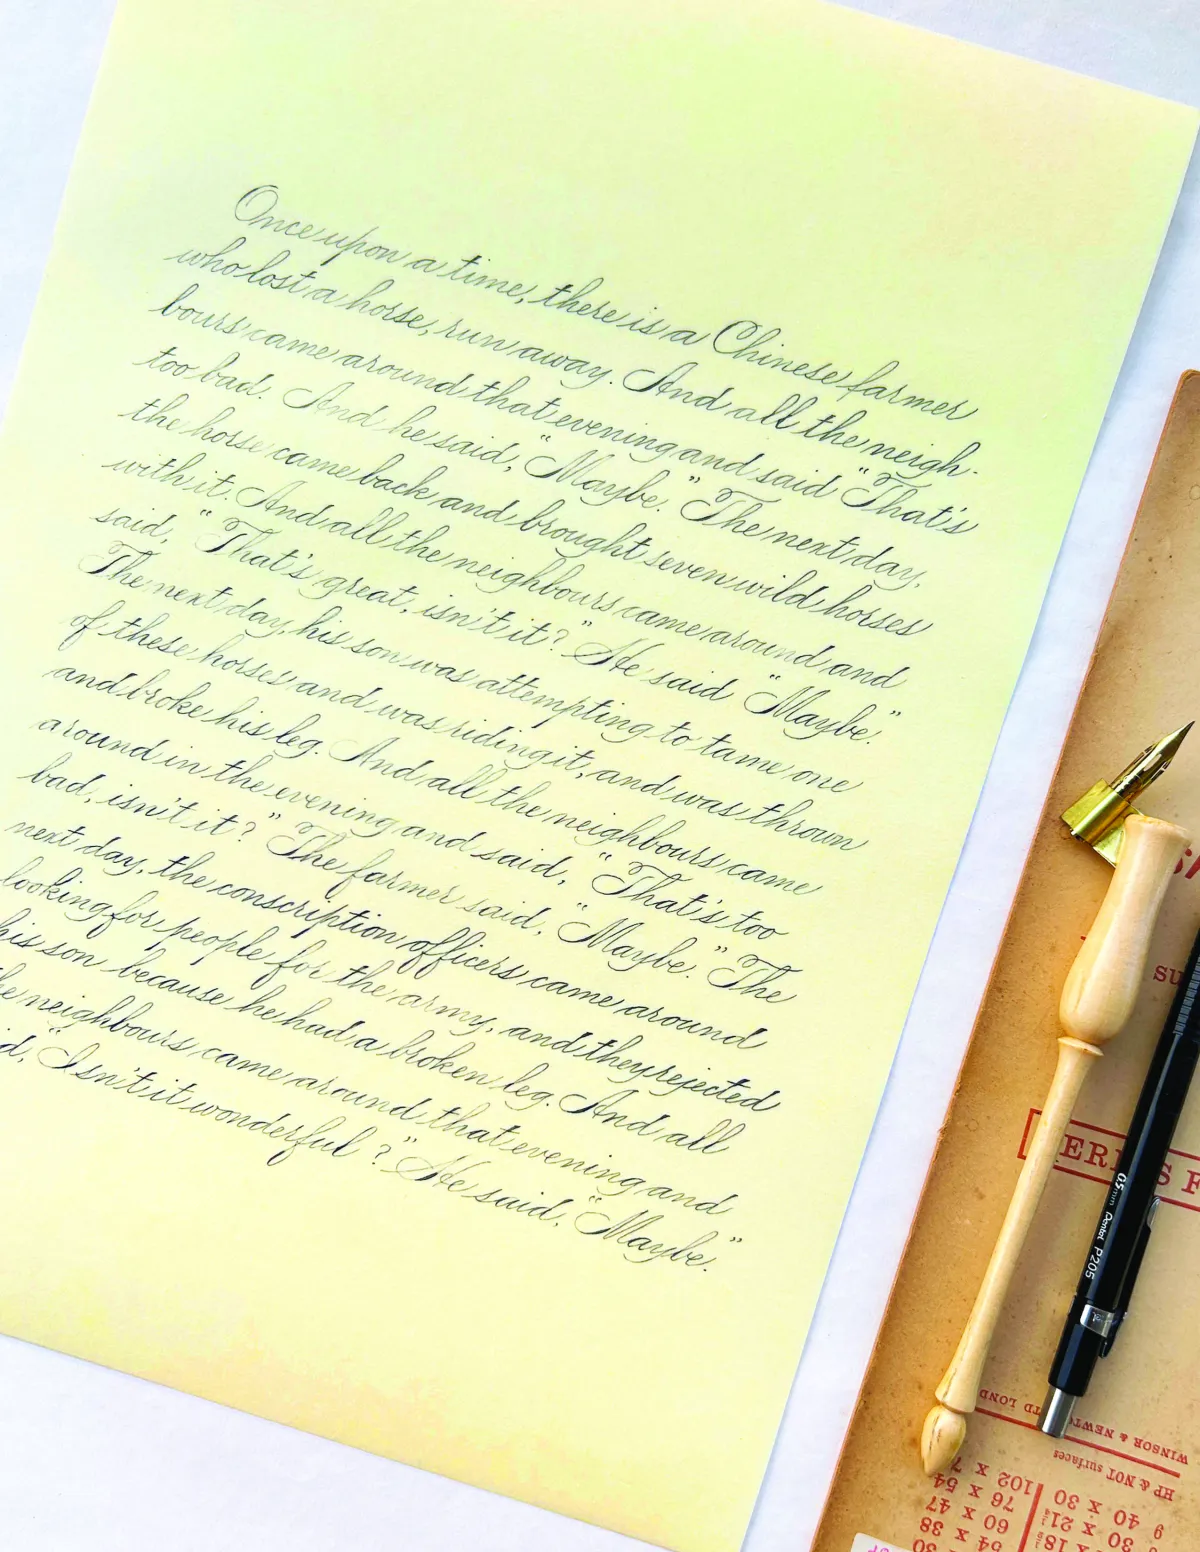 Once upon a time, there is a Chinese farmer
who lost a horse, run away. And all the neigh-
bours came around that evening and said "That's
too bad. And he said, "Maybe." The next day,
the horse came back and brought seven wild horses
with it. And all the neighbours came around and
said, "That's great, isn't it?" He said "Maybe."
The next day, his son was attempting to tame one
of these horses and was riding it, and was thrown
and broke his leg. And all the neighbours came
around in the evening and said, "That's too
bad, isn't it?" The farmer said, "Maybe." The
next day, the conscription officers came around
looking for people for the army, and they rejected
his son because he had a broken leg. And all
he neighbours came around that evening and
d, "Isn't it wonderful?" He said, "Maybe."
0.5mm Pentel P205
SU
ERIES F
WINSOR & NEWTO TD LOND
HP & NOT surfaces
102 x 7
76 x 54
60 x 47
54 x 38
30
9 40 x 30
30 x 21
x 18